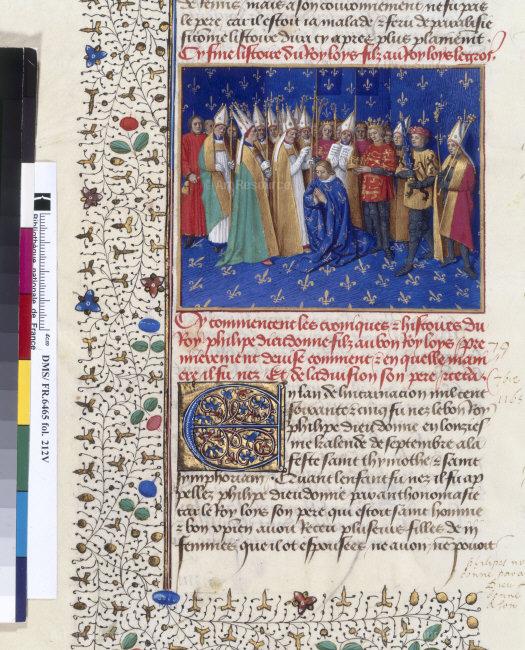 de senis, mais a son couronnement ne fu pas
le pere car il estoit ia malade & feru de paralisie
si come listoire dira cy apres plus plainement.
Cy fine listoire du Roy loys filz au Roy loys le gros.
© Art Resource
Cy commencent les croniques & histoires du
Roy philipe dieudonne filz au bon Roy loys, pre
mierement devise comment & en quelle mani
ere il fu nez. Et de la division son pere
En lan de lincarnation mil cent
soixante & cinq fu nez le bon Roy
philipe dieudonne en lonzies
me kalende de septembre a la
feste saint thymothe & saint
symphorian. Quant lenfant fu nez il fu ap
pellez philipe dieudonne par anthonomasie
car le Roy loys son pere qui estoit saint homme
& bon avoit Receu plusieurs filles de iii
femmes que il ot espousees, ne avoir ne povoit
79
1165
Bibliothèque nationale de France
4cm
DMS/ FR.6465 fol. 212V